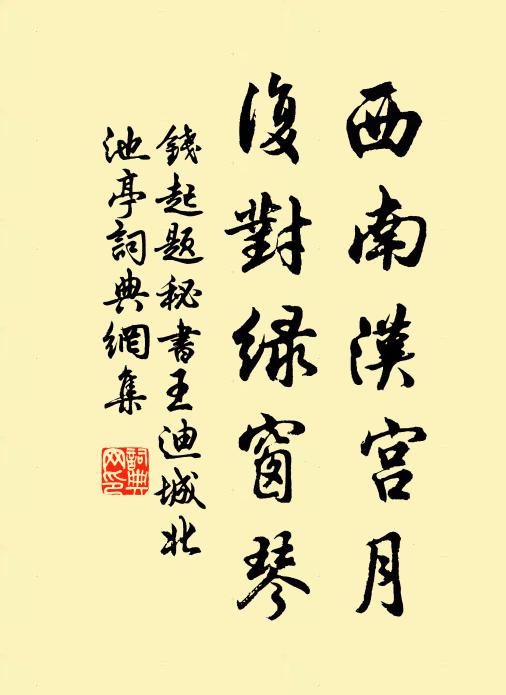 西南漢宮月
復對綠窗琴
錢起題秘書王迪城北
池亭詞典網集
詞典网印